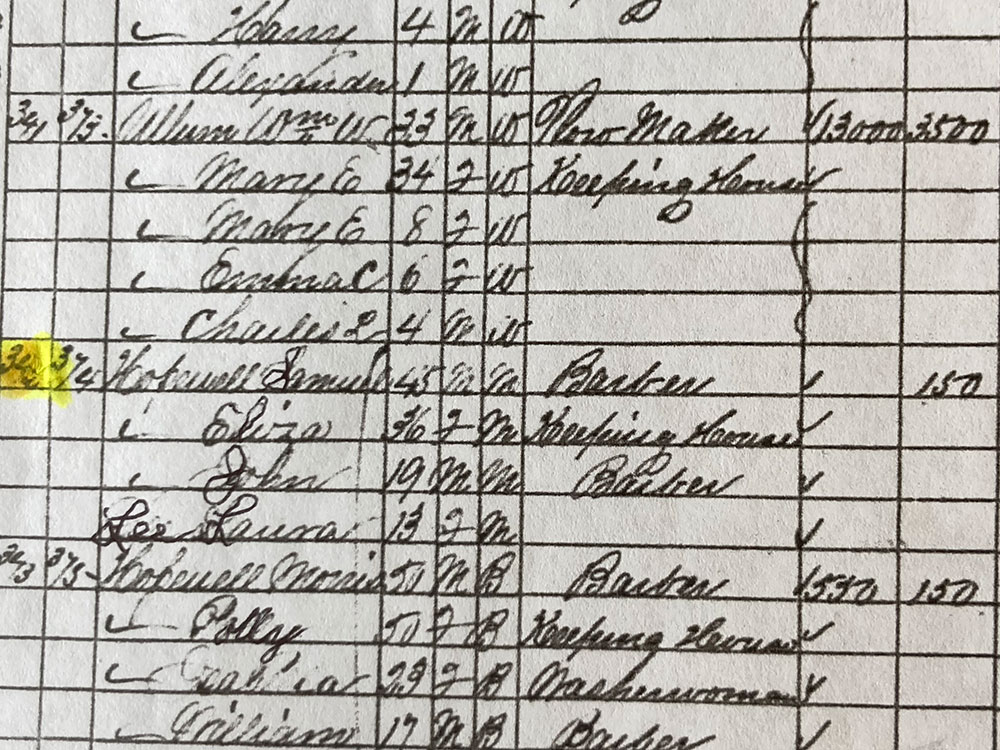 " Harry 4 M W
" Alexander 1 M W
341 373 Ullum Wm W 33 M W Plow Maker 13000 3500
" Mary E 34 F W Keeping House
" Mary E 8 F W
" Emma C 6 F W
" Charles L 4 M W
342 374 Hopewell Samuel 45 M M Barber 150
" Eliza 36 F M Keeping House
" John 19 M M Barber
Lee Laura 13 F M
343 375 Hopewell Morris 50 M B Barber 1550 150
" Polly 50 F B Keeping House
" 23 F B Washerwoman
" William 17 M B Barber